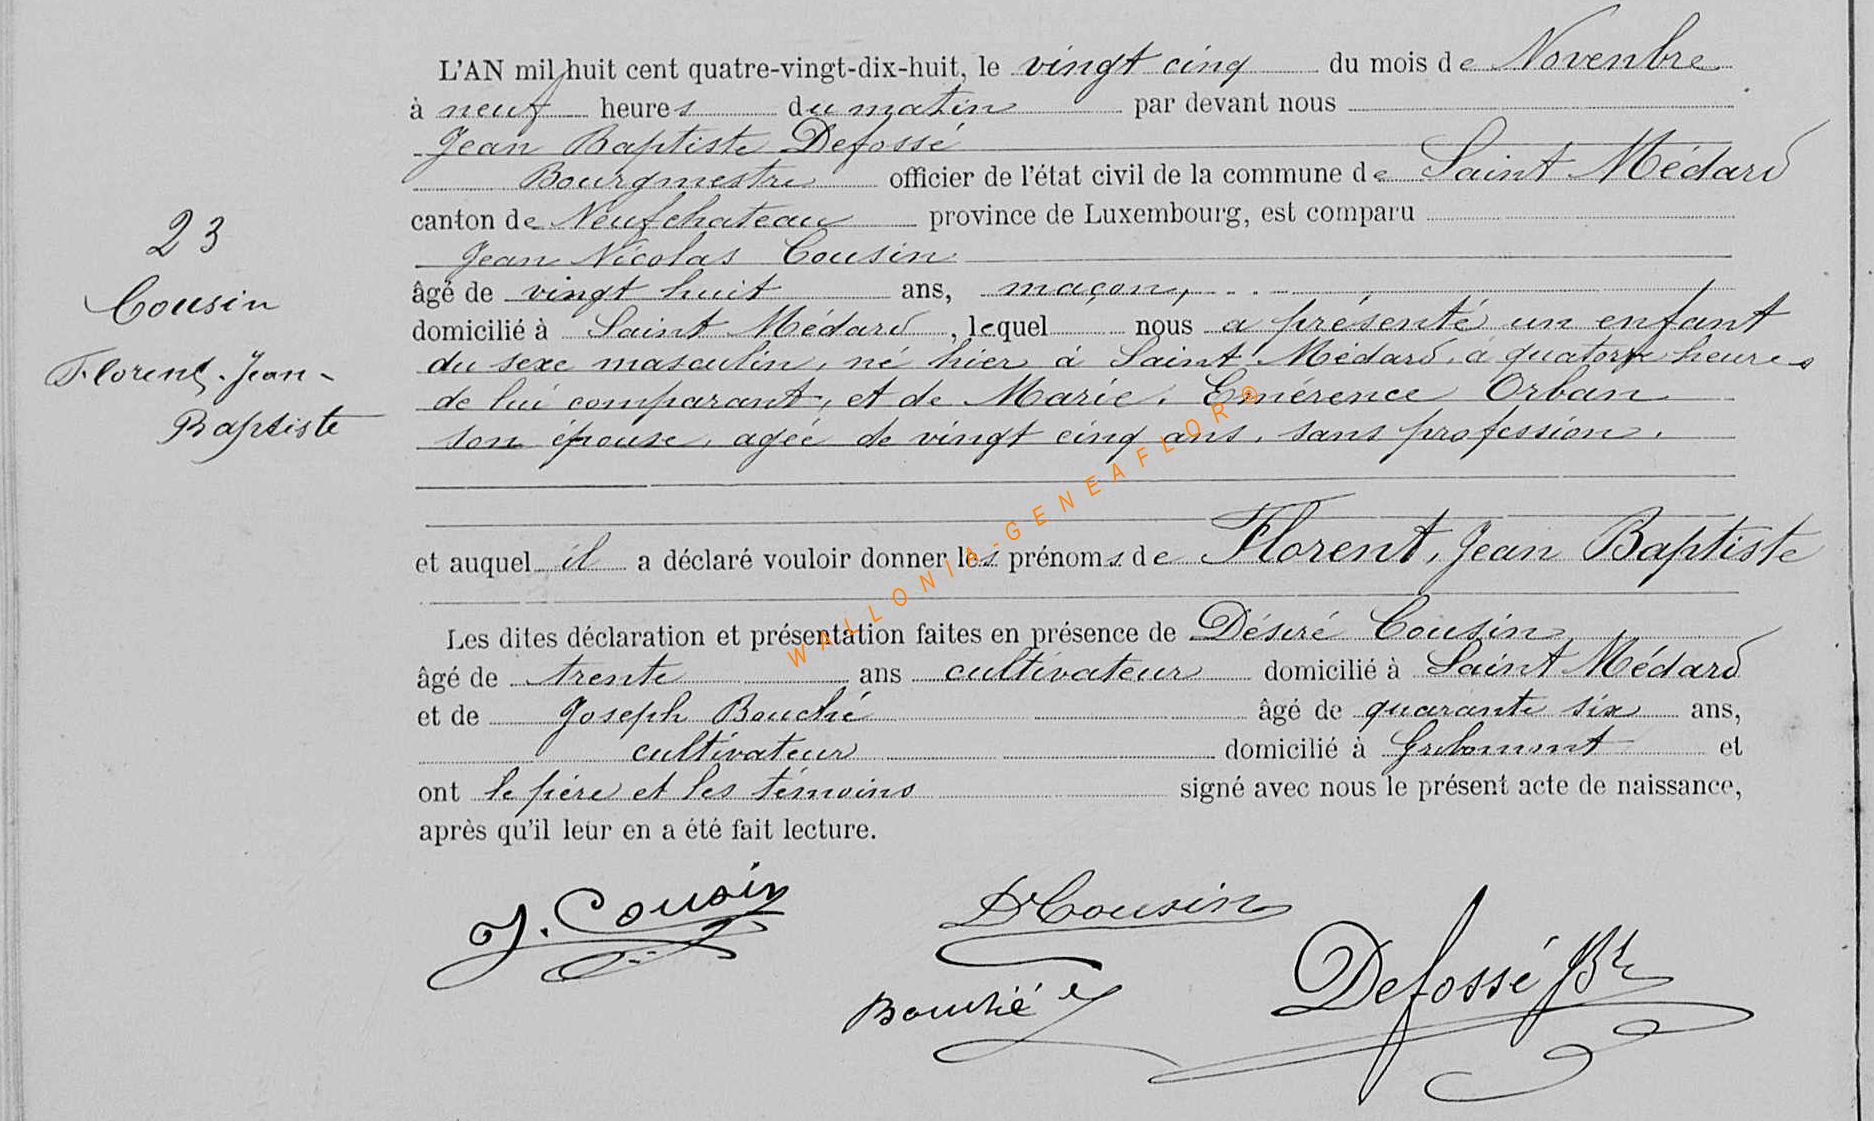 L'AN mil huit cent quatre-vingt-dix-huit, le vingt cinq du mois de Novenbre
à neuf heures du matin par devant nous
Jean Baptiste Defossé
Bourgmestre officier de l'état civil de la commune de Saint Médard
canton de Neufchateau province de Luxembourg, est comparu
Jean Nicolas Cousin
âgé de vingt huit ans, maçon,
domicilié à Saint Médard, lequel nous a présenté un enfant
du sexe masculin, né hier à Saint Médard, à quatorze heures
de lui comparant, et de Marie, Emérence Orban
son épouse, agée de vingt cinq ans, sans profession.
et auquel il a déclaré vouloir donner les prénoms de Florent, Jean Baptiste
Les dites déclaration et présentation faites en présence de Désiré Cousin,
âgé de trente ans cultivateur domicilié à Saint Médard
et de Joseph Bouché âgé de quarante six ans,
cultivateur domicilié à Gribomont et
ont le père et les témoins signé avec nous le présent acte de naissance,
après qu'il leur en a été fait lecture.
23
Cousin
Florent, Jean-
Baptiste
J. Cousin
D Cousin
Bouché
Defossé JB
WALLONIA-GENEAFLOR®